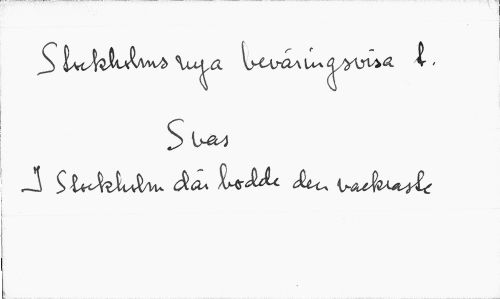 Stockholms nya beväringsvisa t.
Svas
I Stockholm där bodde den vackraste